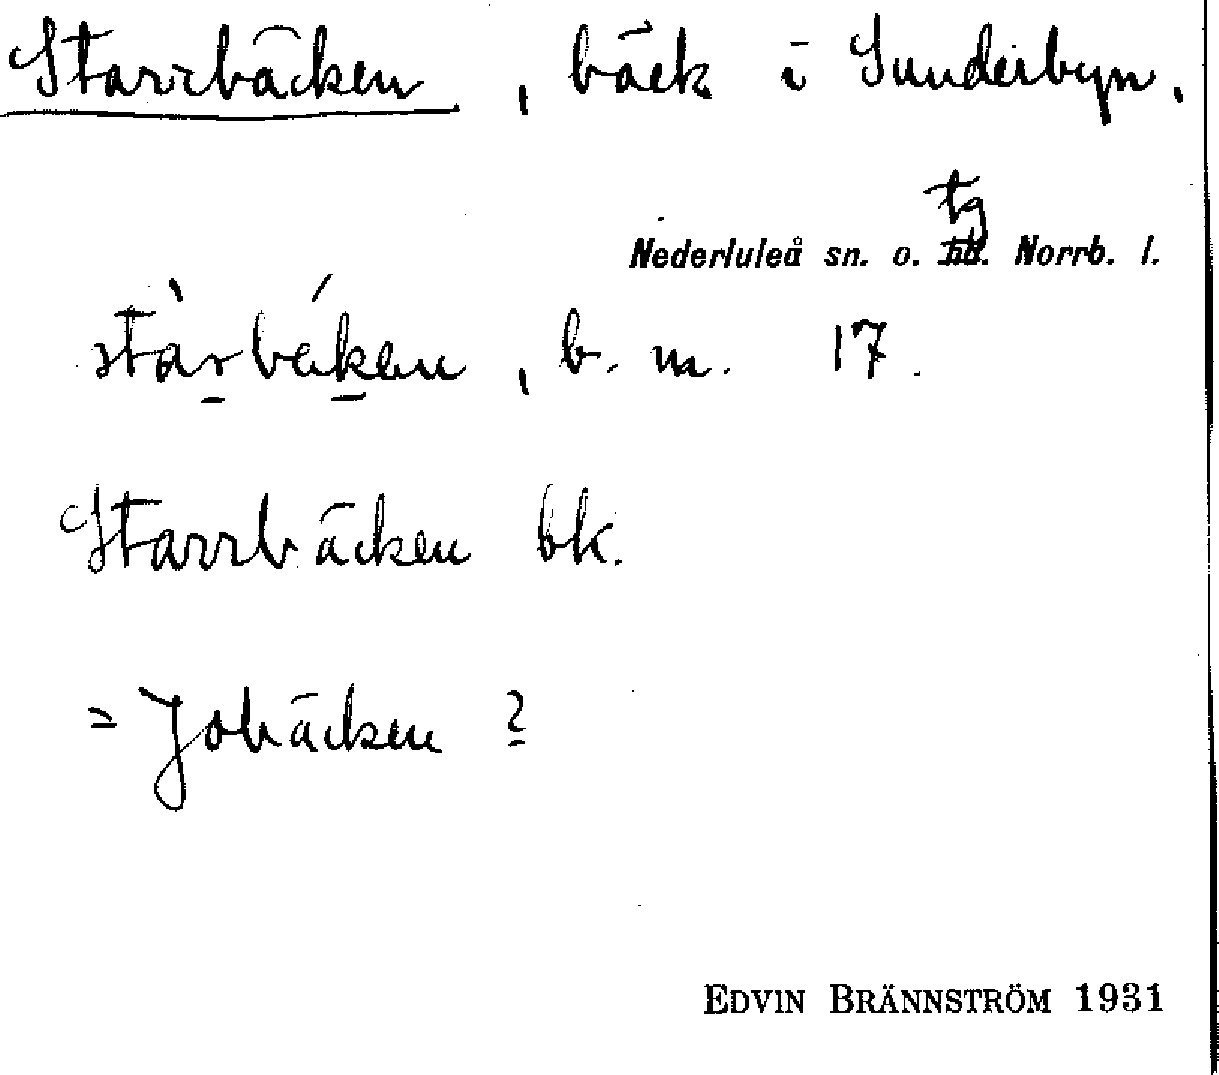 Starrbäcken, bäck i Sunderbyn.
tg
Nederluleå sn. o. hd. Norrb. l.
stàrbéken, b. m. 17.
Starrbäcken bk.
= Jobäcken ?
EDVIN BRÄNNSTRÖM 1931